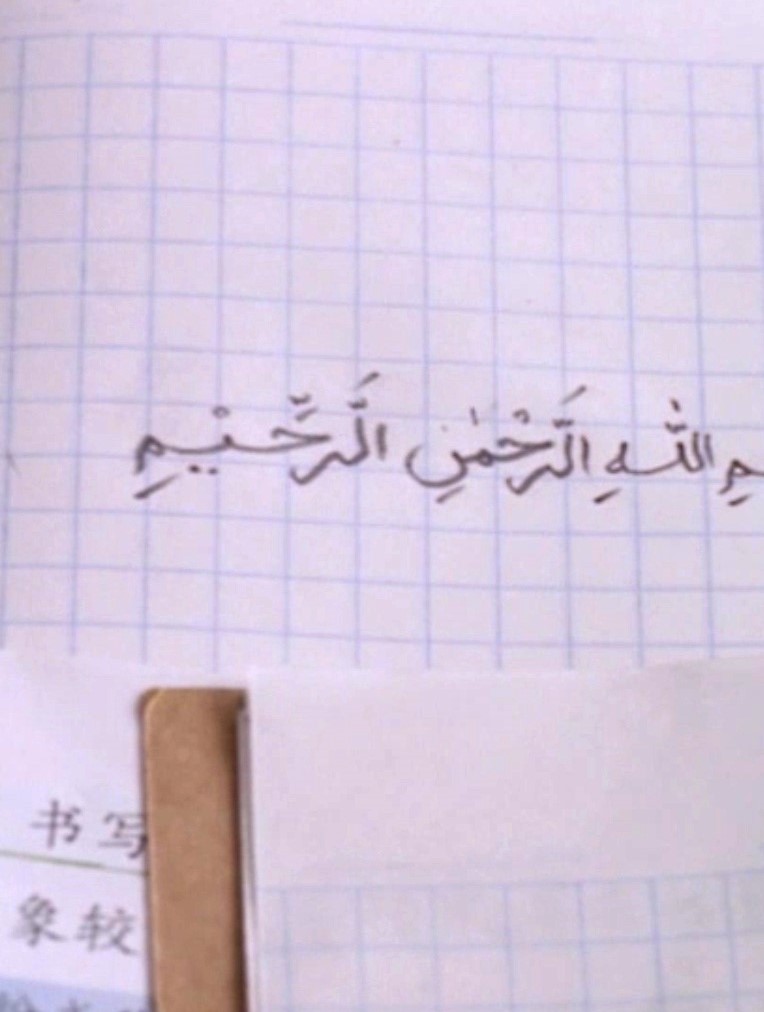 مِ اللّٰهِ اَلرَّحْمٰنِ اَلرَّحْيمِ
书写
象较